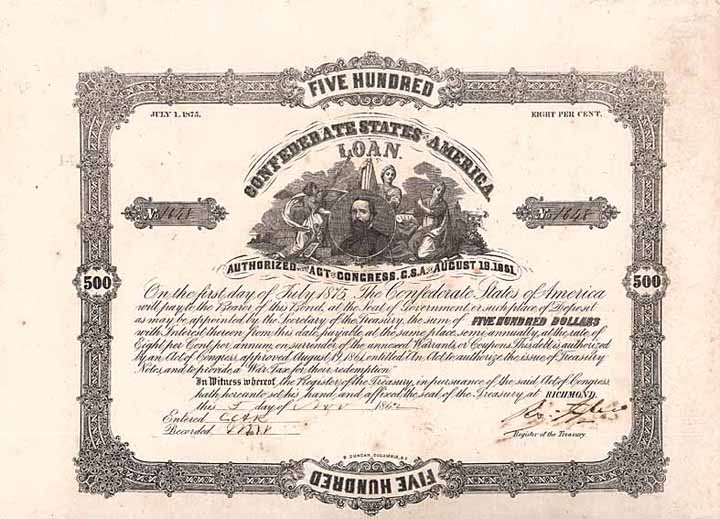 FIVE HUNDRED
JULY 1, 1875.
EIGHT PER CENT.
CONFEDERATE STATES OF AMERICA
LOAN.
No 1648
No 1648
AUTHORIZED BY ACT OF CONGRESS, C.S.A. OF AUGUST 19, 1861.
500
500
On the first day of July 1875, The Confederate States of America
will pay to the Bearer of this Bond, at the seat of Government, or such place of Deposit
as may be appointed by the Secretary of the Treasury, the sum of FIVE HUNDRED DOLLARS
with Interest thereon from this date, payable at the same place, semi-annually, at the rate of
Eight per Cent per annum, on surrender of the annexed Warrants or Coupons. This debt is authorized
by an Act of Congress, approved August 19, 1861, entitled "An Act to authorize the issue of Treasury
Notes, and to provide a War Tax for their redemption."
In Witness whereof, the Register of the Treasury, in pursuance of the said Act of Congress
hath hereunto set his hand, and affixed the seal of the Treasury, at RICHMOND,
this 3 day of Nov 1862
Entered
Recorded
Register of the Treasury
B. DUNCAN, COLUMBIA, S.C.
FIVE HUNDRED